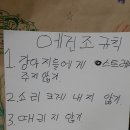 예진조 규칙
1 강아지들에게 스트레
주지 않기
2 소리 크게 내지 않기
3 때리지 않기